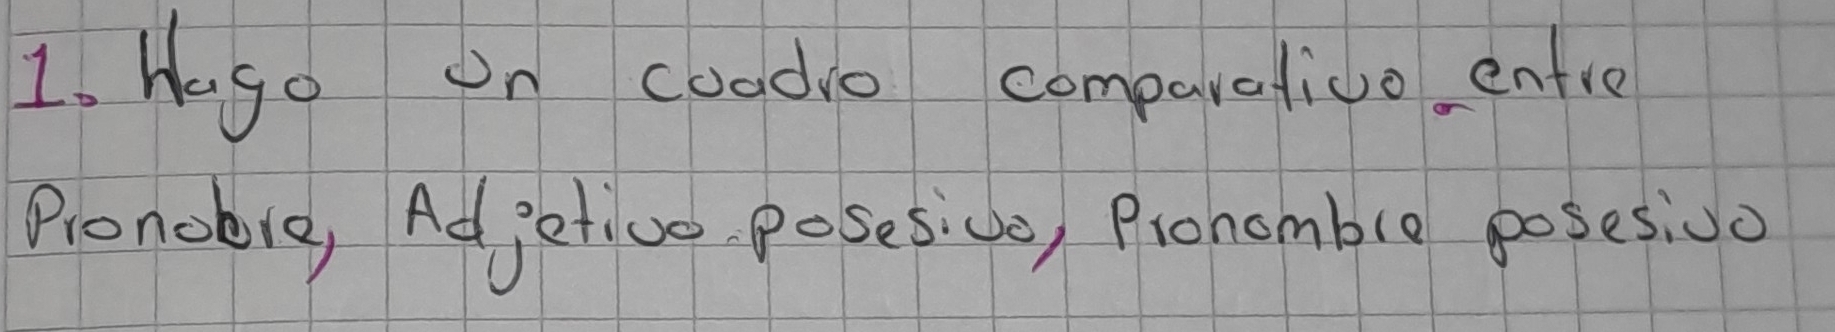 1. Hago un cuadro comparativo entre
Pronobre, Adjetivo posesivo, Pronombre posesivo